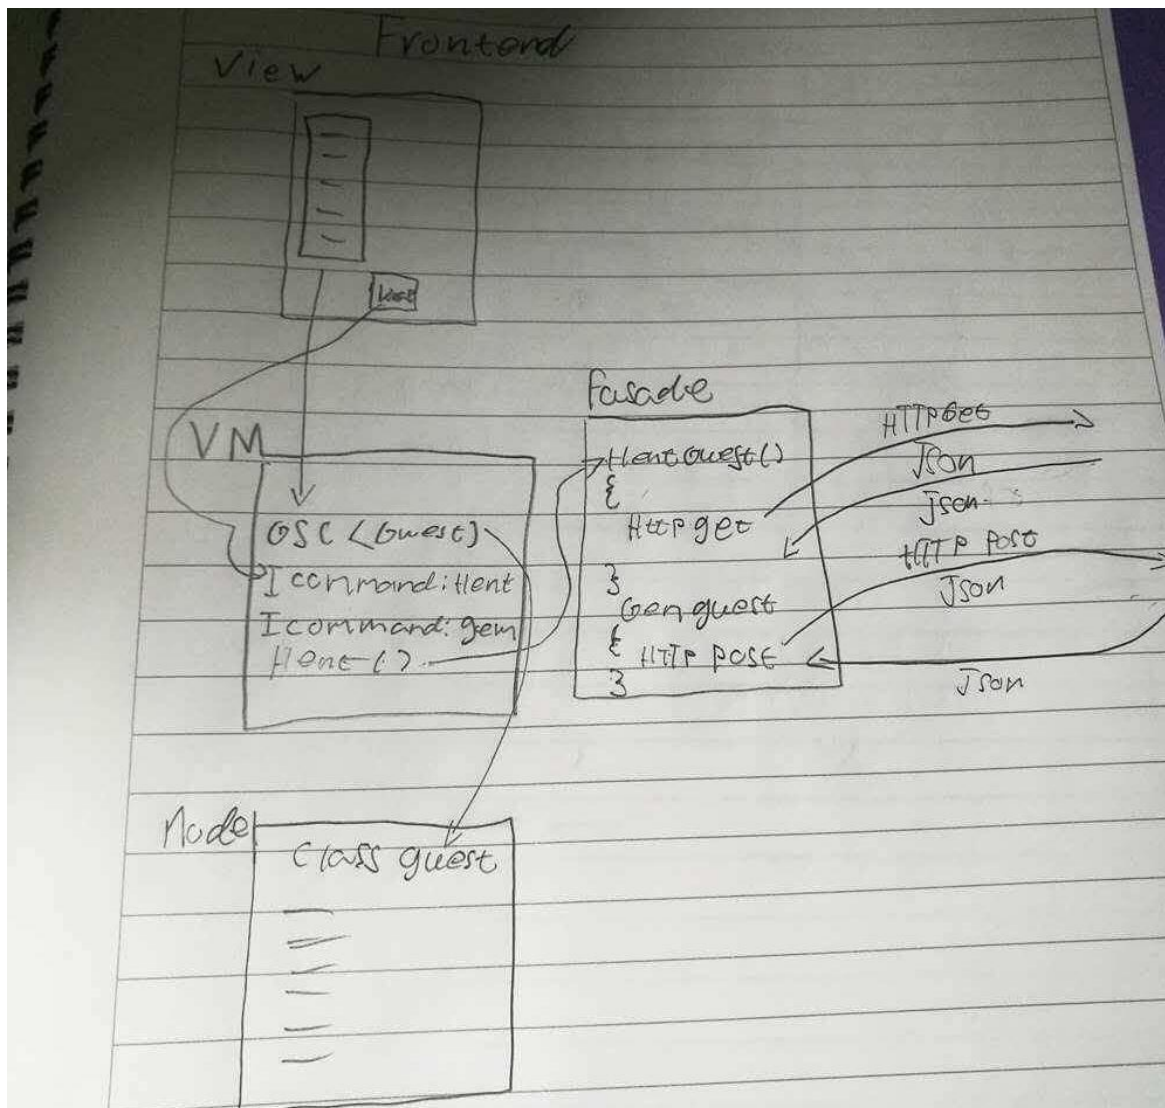 Frontend
View
Hent
VM
OSC <Guest>
I command: Hent
I command: gem
Hent()
Fasade
Hent Guest()
{
Http get
}
Gem guest
{
HTTP POST
}
HTTP Get
Json
Json
HTTP Post
Json
Json
Model
Class guest